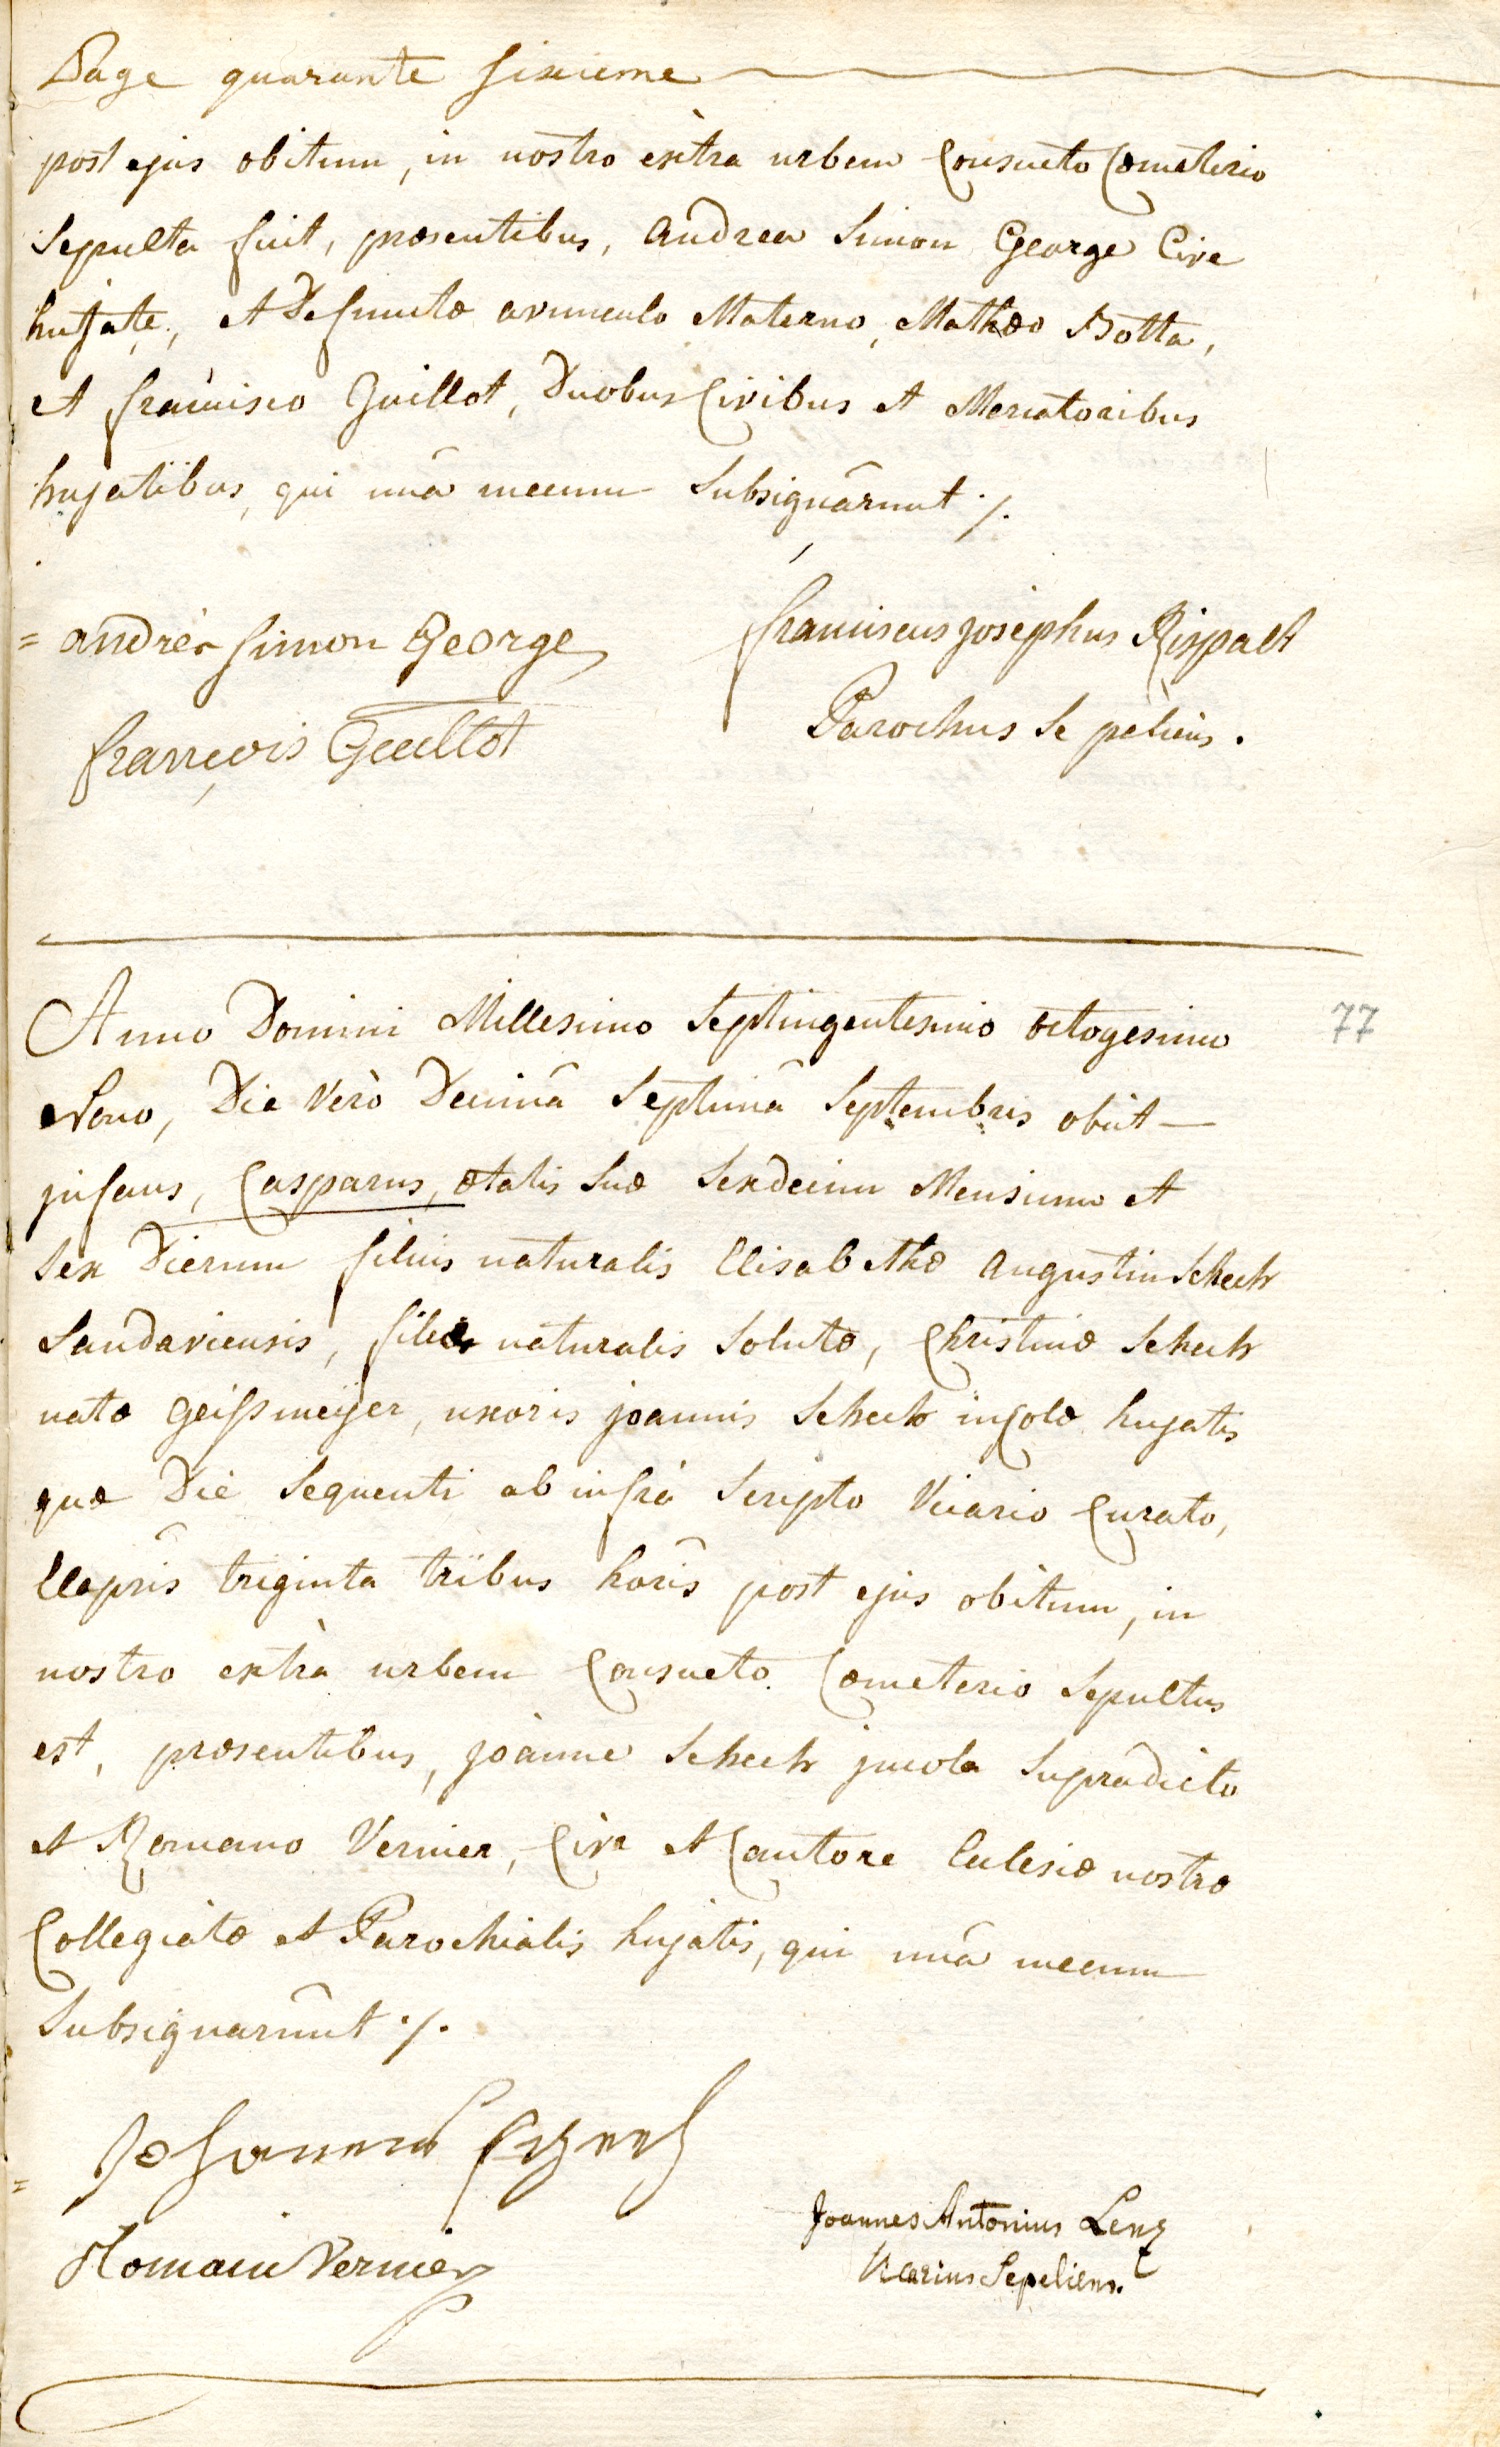 Page quarante sixieme
post ejus obitum, in nostro extra urbem Consueto Cœmeterio
Sepulta fuit, præsentibus, Andrea Simon George Cive
hujate, et Defunctæ avunculo Materno, Mathæo Botta,
et francisco Guillot, Duobus Civibus et Mercatoribus
hujatibus, qui unâ mecum Subsignârunt ./.
= andrés simon George
franciscus josephus Rispalt
Parochus Sepeliens.
françois Guillot
Anno Domini Millesimo Septingentesimo octogesimo
77
Nono, Die Verò Decimâ Septimâ Septembris obiit —
jnfans, Casparus, ætatis Suæ Sexdecim Mensium et
Sex Dierum filius naturalis Elisabethæ Augustin Schech
Landaviensis, filiæ naturalis Solutæ, Christinæ Schech
natæ Geissmeÿer, uxoris joannis Schech incolæ hujatis
quæ Die Sequenti ab infrà Scripto Vicario Curato,
Elapsis triginta tribus horis post ejus obitum, in
nostro extrà urbem Consueto Cœmeterio Sepultus
est, præsentibus, joanne Schech jncola Supradicto
et Romano Vernier, Cive et Cantore Ecclesiæ nostræ
Collegiatæ et Parochialis hujatis, qui unâ mecum
Subsignarunt ./.
= Johannes Schech
Joannes Antonius Lenz
Romain Vernier
Vicarius Sepeliens.